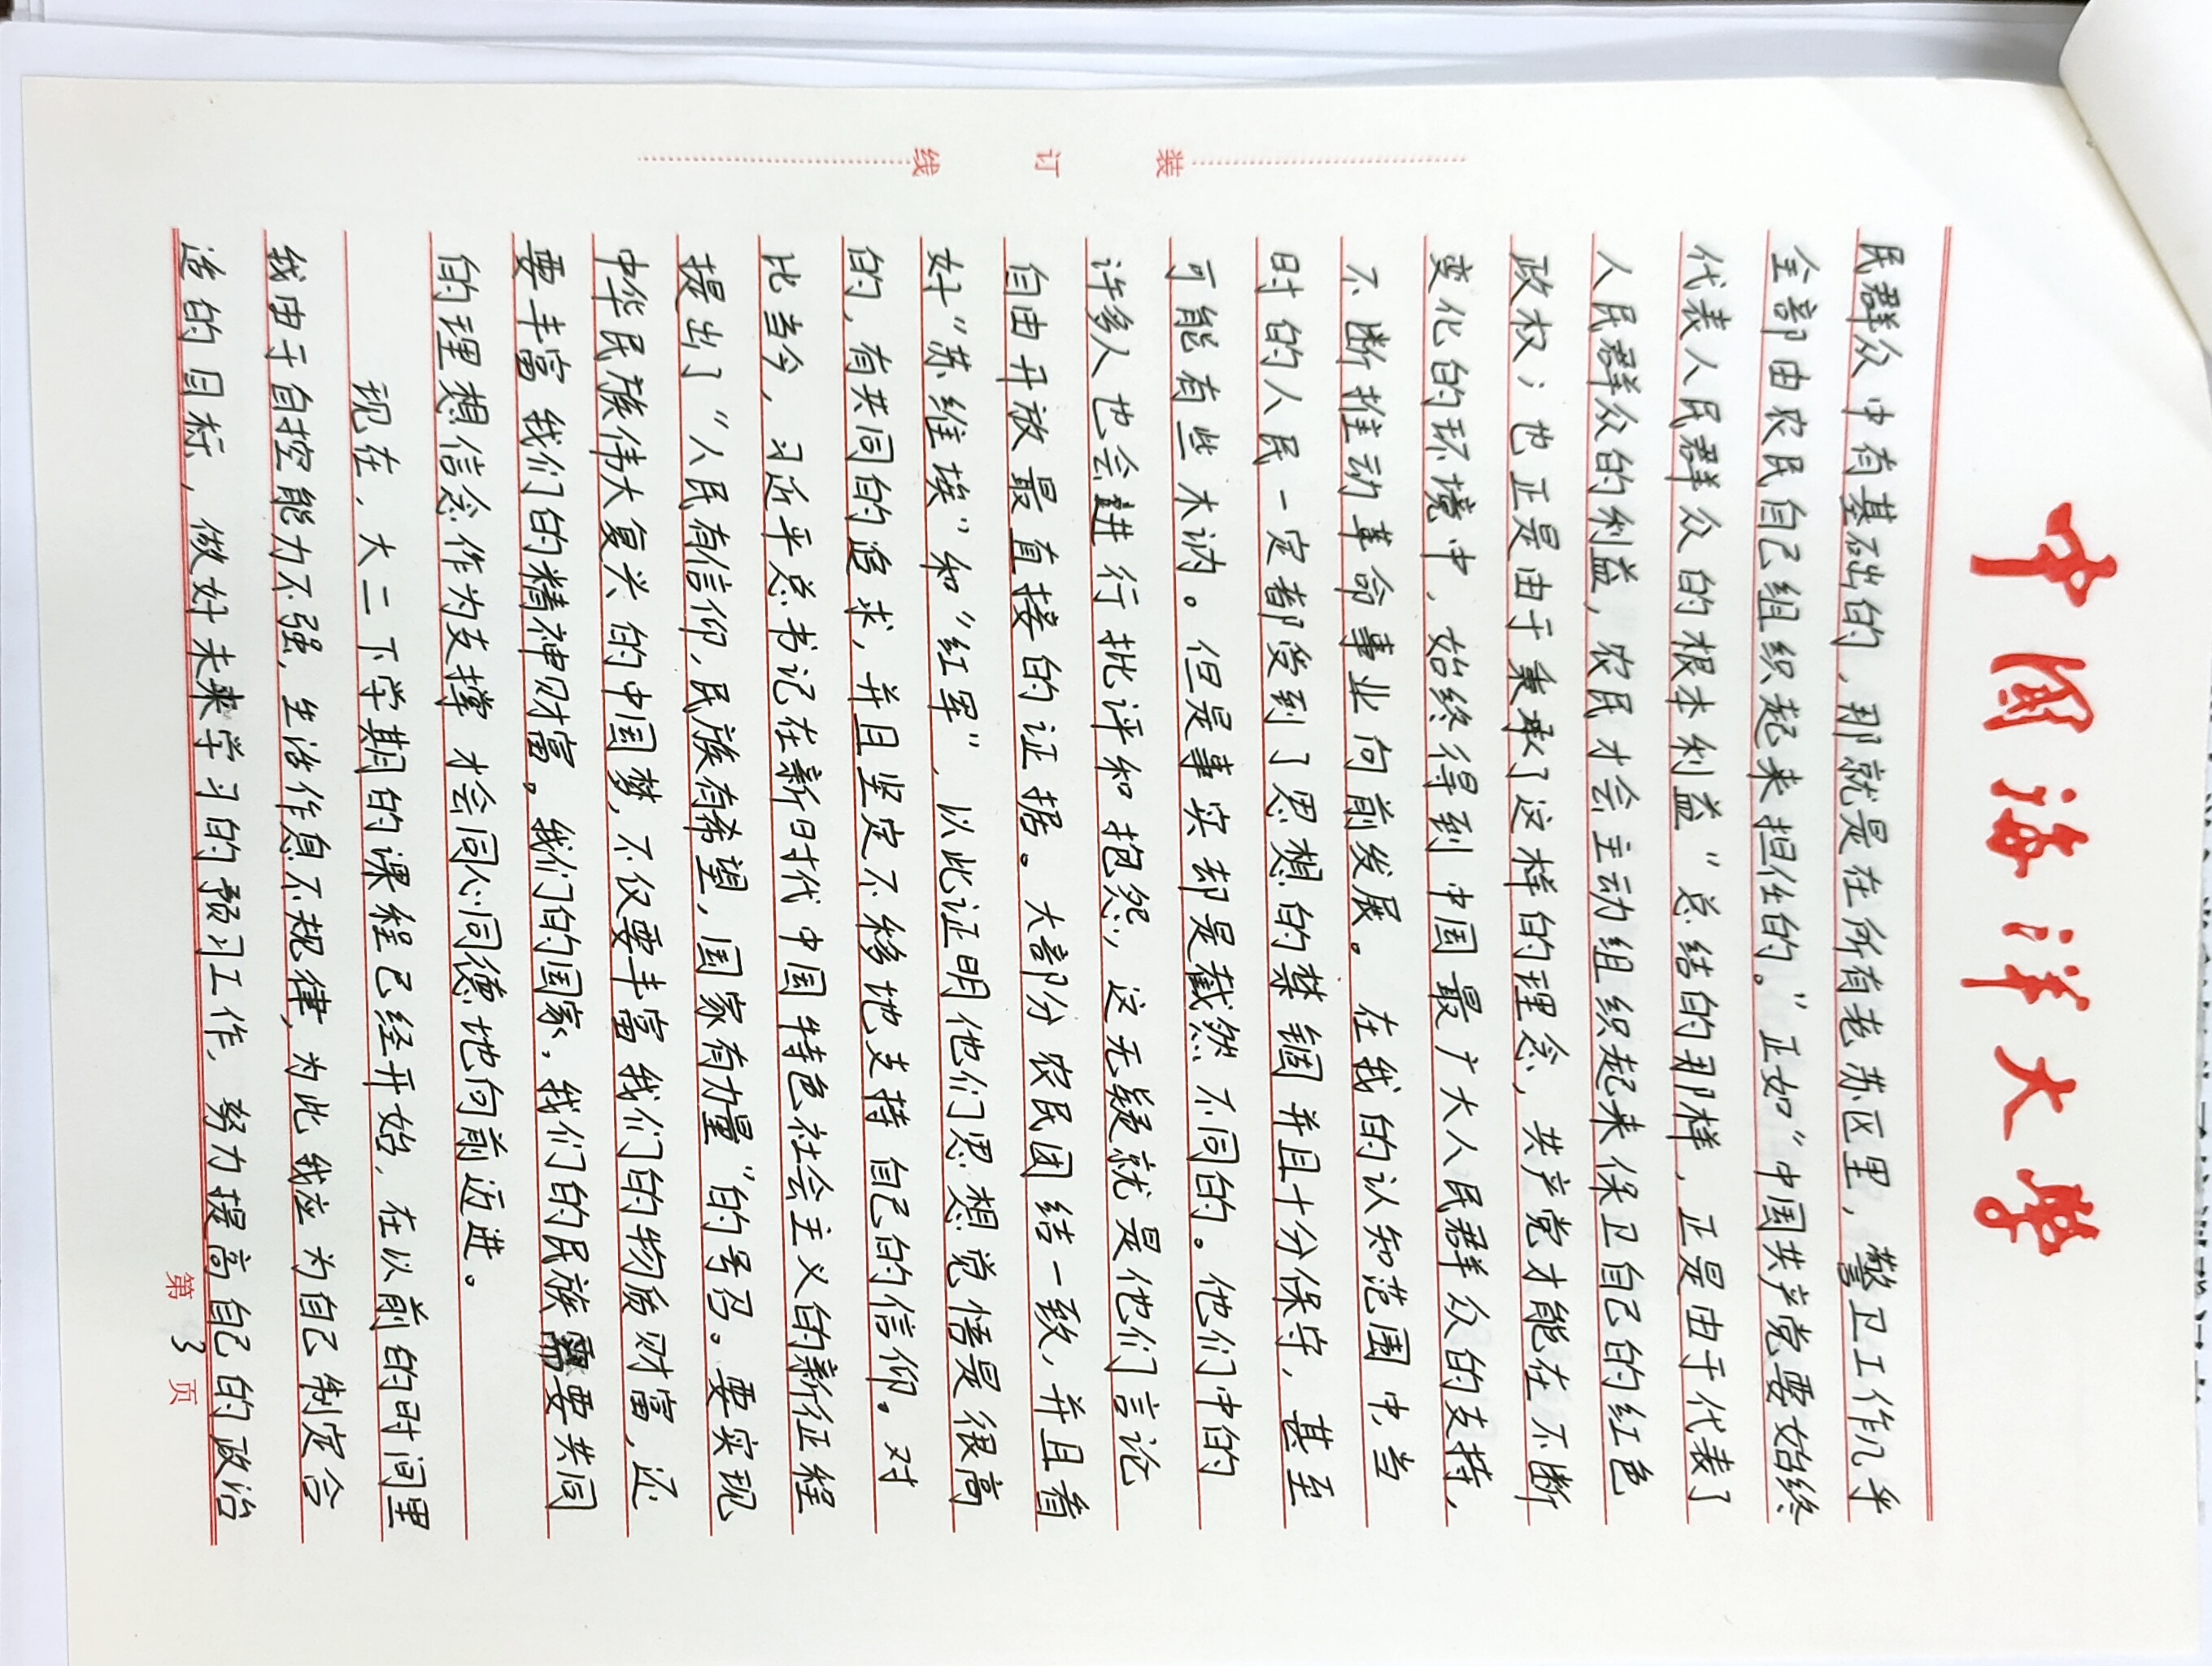 中国海洋大学
民群众中有基础的，那就是在所有老苏区里，警卫工作几乎
全部由农民自己组织起来担任的。”正如“中国共产党要始终
代表人民群众的根本利益”总结的那样，正是由于代表了
人民群众的利益，农民才会主动组织起来保卫自己的红色
政权；也正是由于秉承了这样的理念，共产党才能在不断
变化的环境中，始终得到中国最广大人民群众的支持，
不断推动革命事业向前发展。在我的认知范围中，当
时的人民一定都受到了思想的禁锢并且十分保守，甚至
可能有些木讷。但是事实却是截然不同的。他们中的
许多人也会进行批评和抱怨，这无疑就是他们言论
自由开放最直接的证据。大部分农民团结一致，并且看
好“苏维埃”和“红军”，以此证明他们思想觉悟是很高
的，有共同的追求，并且坚定不移地支持自己的信仰。对
比当今，习近平总书记在新时代中国特色社会主义的新征程
提出了“人民有信仰，民族有希望，国家有力量”的号召。要实现
中华民族伟大复兴的中国梦，不仅要丰富我们的物质财富，还
要丰富我们的精神财富。我们的国家，我们的民族需要共同
的理想信念作为支撑才会同心同德地向前迈进。
现在，大二下学期的课程已经开始，在以前的时间里
我由于自控能力不强，生活作息不规律，为此我应为自己制定合
适的目标，做好未来学习的预习工作，努力提高自己的政治
第3页
装
订
线